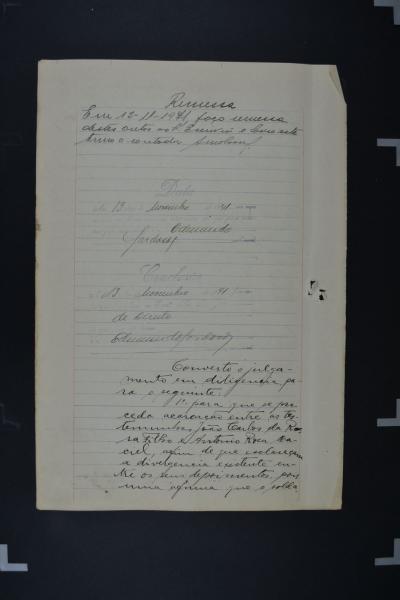 Remessa
Em 12-11-1941 faço remessa
destes autos ao Escrivão e lavro este
termo o contador
Data
13 Novembro 41
Edmundo
Cardoso
Conclusão
13 Novembro 41
de direito
Edmundo Cardoso
Converto o julga-
mento em diligencia pa-
ra o seguinte:
1º para que se pro-
ceda acareação entre as tes-
temunhas João Carlos da Ro-
sa Filho e Antonio Rosa Ma-
ciel, afim de que esclareçam
a divergencia existente en-
tre os seus depoimentos, pois
uma afirma que o solda-